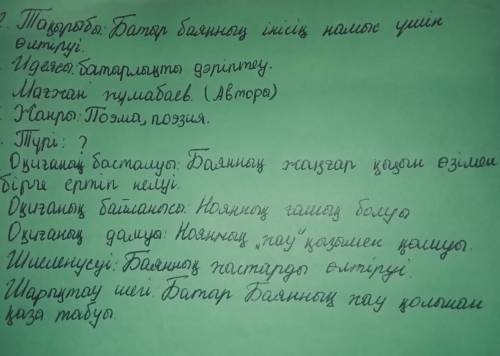 2. Тақырыбы: Батыр баянның інісің намыс үшін
өлтіруі.
Идеясы: батырлықты дәріптеу.
Мағжан жұмабаев. (Авторы)
Жанры: Поэма, поэзия.
Түрі: ?
Оқиғаның басталуы: Баянның жаңғар қызын өзімен
бірге ертіп келуі.
Оқиғаның байланысы: Ноянның ғашық болуы
Оқиғаның дамуы: Ноянның „жау" қызымен қашуы.
Шиеленусуі: Баянның жастарды өлтіруі.
Шарықтау шегі: Батыр Баянның жау қолынан
қаза табуы.